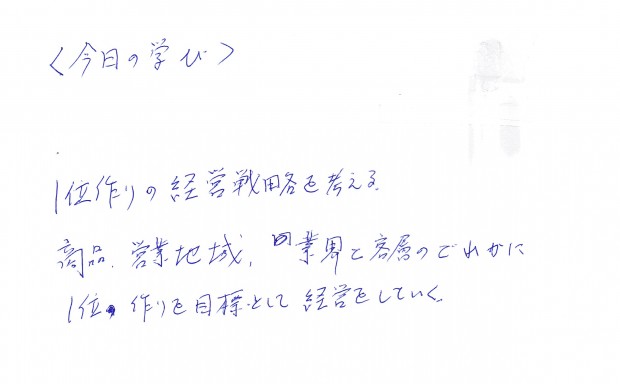 〈今日の学び〉
1位作りの経営戦略を考える
商品、営業地域、業界と客層のどれかに
1位作りを目標として経営をしていく。